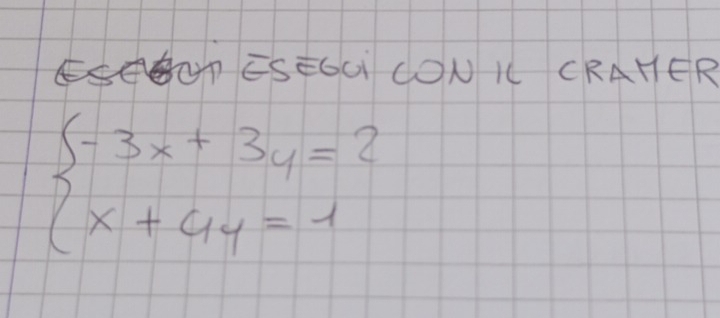 ESEGUI CON IL CRAMER
{-3x + 3y = 2
x + 4y = 1